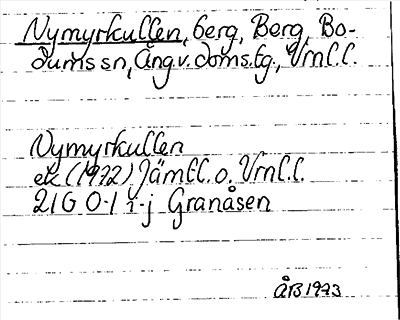 Nymyrkullen, berg, Berg, Bo-
dums sn, Ång.v. doms.bg., Vrnl.l.
Nymyrkullen
ek (1972) Jämtl.l. o. Vrnl.l.
21G 0-1 i-j Granåsen
ÅB 1973